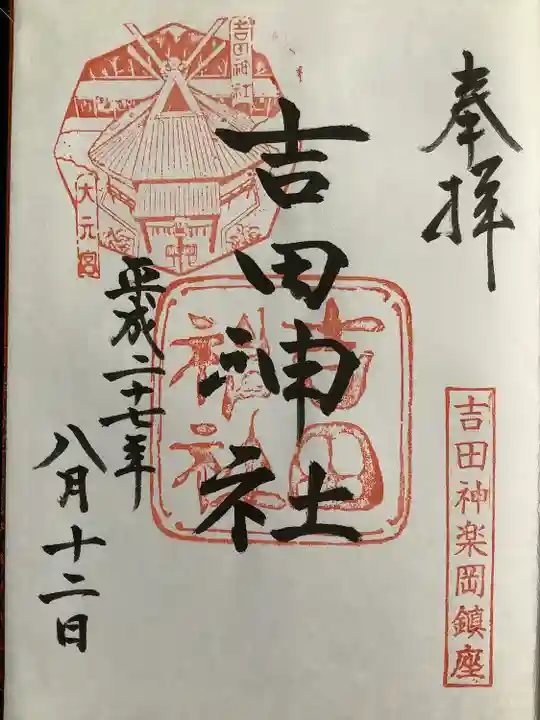 奉拝
吉田神楽岡鎮座
吉田神社
吉田神社
吉田
神社
大元宮
平成二十七年
八月十二日